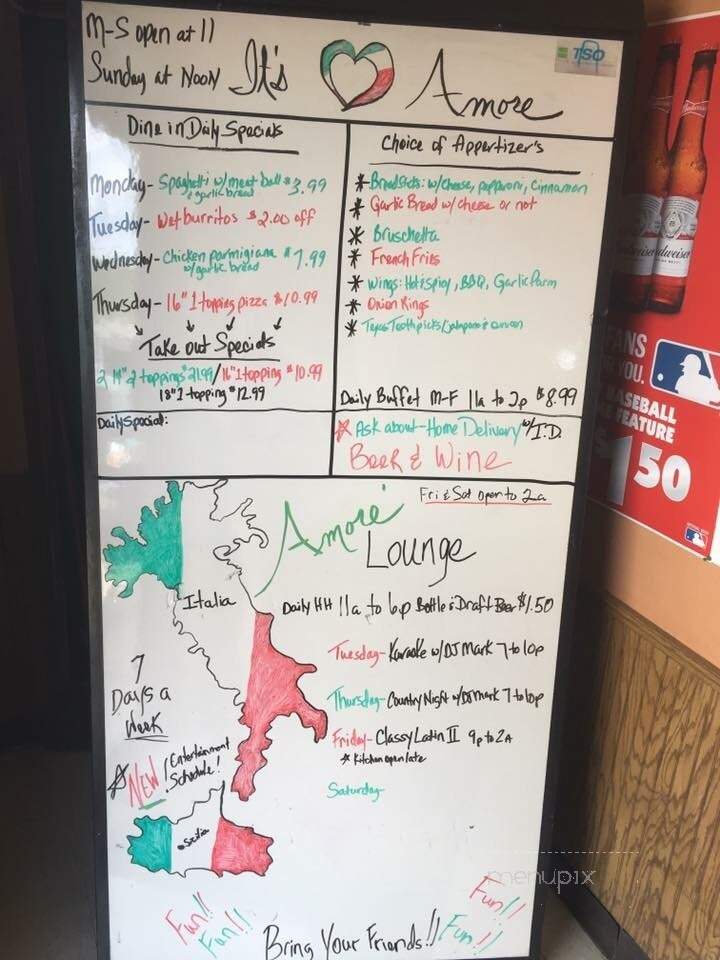 M-S open at 11
Sunday at Noon
It's Amore
TSO
Dine in Daily Specials
Monday- Spaghetti w/meat ball $3.99
+ garlic bread
Tuesday- Wet burritos $2.00 off
Wednesday- Chicken parmigiana $7.99
w/garlic bread
Thursday- 16" 1 topping pizza $10.99
Take out Specials
2 14" 2 toppings $21.99 / 16" 1 topping $10.99
18" 1 topping $12.99
Daily Special:
Choice of Appertizer's
* Breadsticks: w/cheese, pepparoni, Cinnamon
* Garlic Bread w/cheese or not
* Bruschetta
* French Fries
* Wings: Hot, spicy, BBQ, Garlic Parm
* Onion Rings
* Texas Toothpicks/
Daily Buffet M-F 11a to 2p $8.99
Ask about-Home Delivery w/I.D.
Beer & Wine
Fri & Sat open to 2a
Amore' Lounge
Italia
Daily HH 11a to 6p Bottle & Draft Beer $1.50
Tuesday- Karaoke w/DJ Mark 7 to 10p
Thursday- Country Night w/DJ Mark 7 to 10p
Friday- Classy Latin II 9p to 2A
* Kitchen open late
Saturday-
7
Days a
Week
NEW! Entertainment
Schedule!
Sicilia
Fun!!
Fun!!
Bring Your Friends!!
Fun!!
Fun!!
menupix
Budweiser
FANS
YOU.
BASEBALL
FEATURE
$1 50